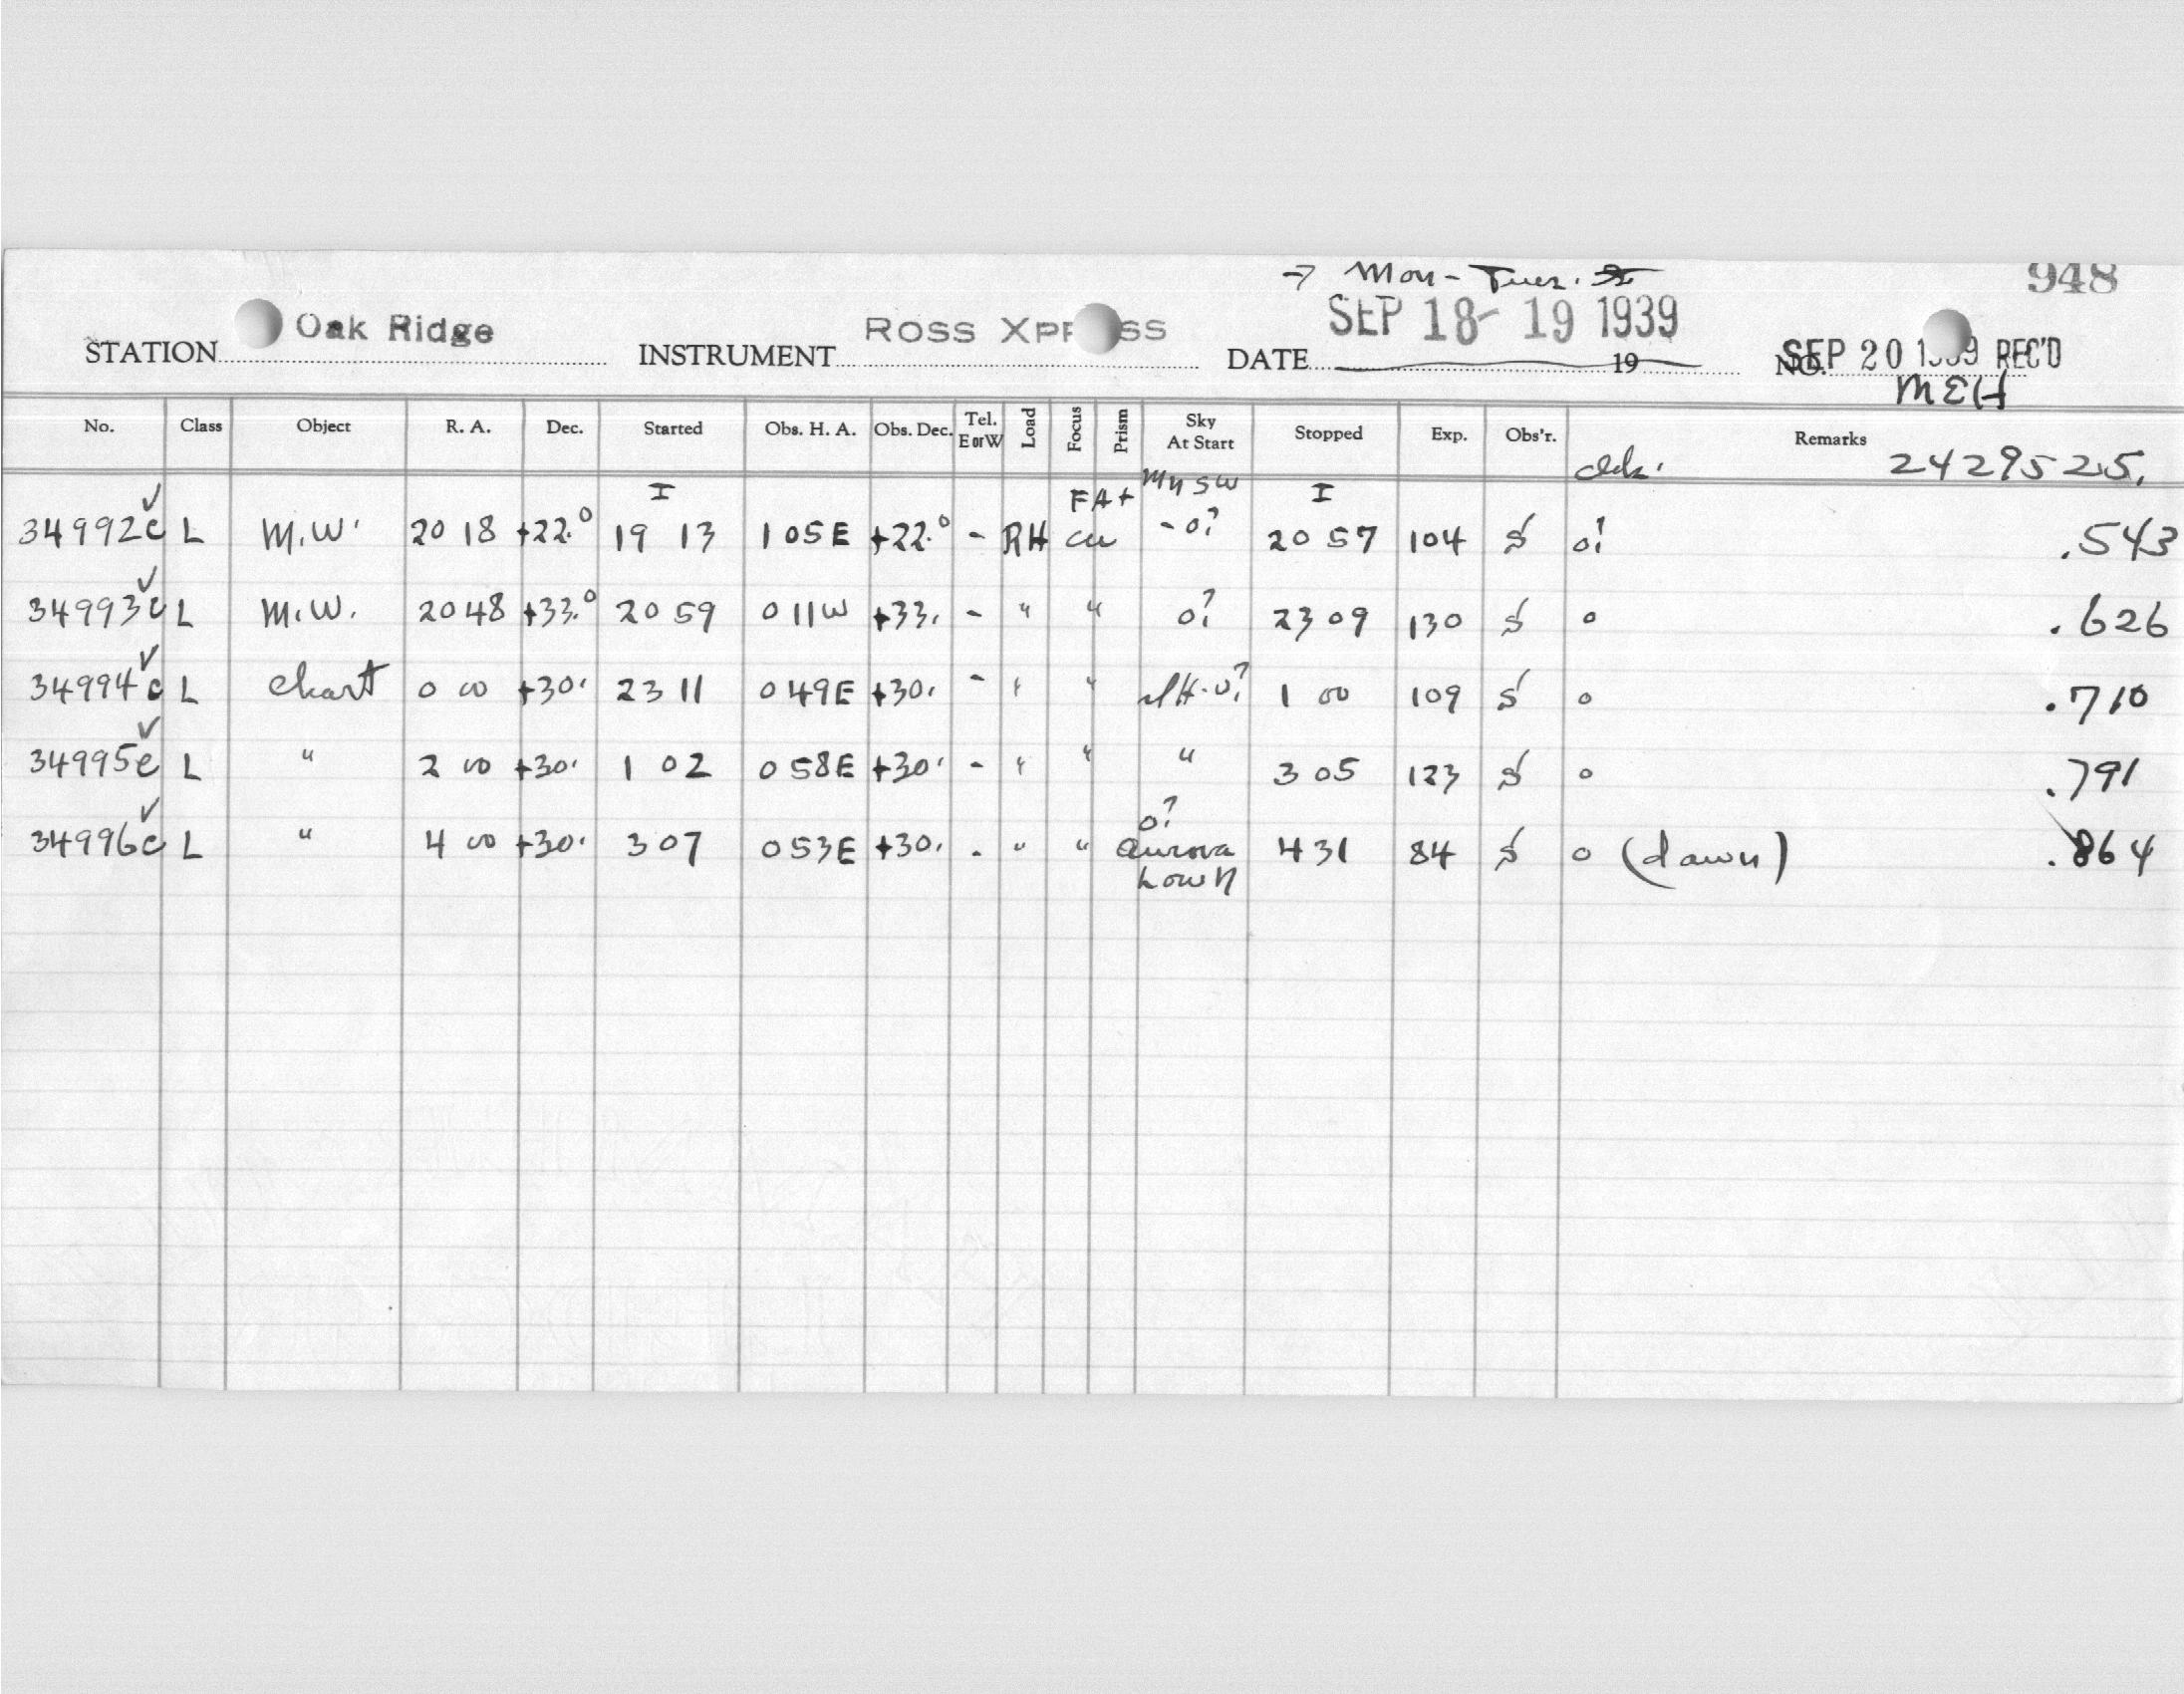 → Mon - Tues. 948
STATION Oak Ridge INSTRUMENT ROSS XPRESS DATE SEP 18-19 1939 19 NO. SEP 20 1939 REC'D
MEH
No. Class Object R. A. Dec. Started Obs. H. A. Obs. Dec. Tel. E or W Load Focus Prism Sky At Start Stopped Exp. Obs'r. Remarks
2429525.
I FA+ Mn SW I
34992c ✓ L M.W. 20 18 +22.° 19 13 1 05E +22.° - RH cu - o? 20 57 104 S o! .543
34993c ✓ L M.W. 20 48 +33.° 20 59 0 11W +33. - " " o? 23 09 130 S o .626
34994c ✓ L Chart 0 00 +30. 23 11 0 49E +30. - " " o? 1 00 109 S o .710
34995c ✓ L " 2 00 +30. 1 02 0 58E +30. - " " " 3 05 123 S o .791
34996c ✓ L " 4 00 +30. 3 07 0 53E +30. - " " o? Aurora Low N 4 31 84 S o (dawn) .864